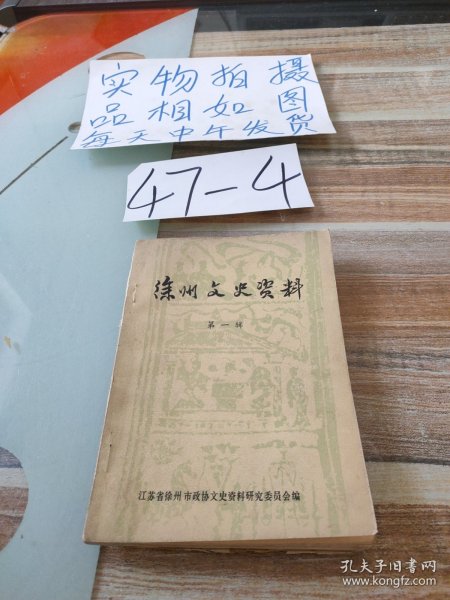 实物拍摄
品相如图
每天中午发货
47-4
徐州文史资料
第一辑
江苏省徐州市政协文史资料研究委员会编
孔夫子旧书网
www.kongfz.com